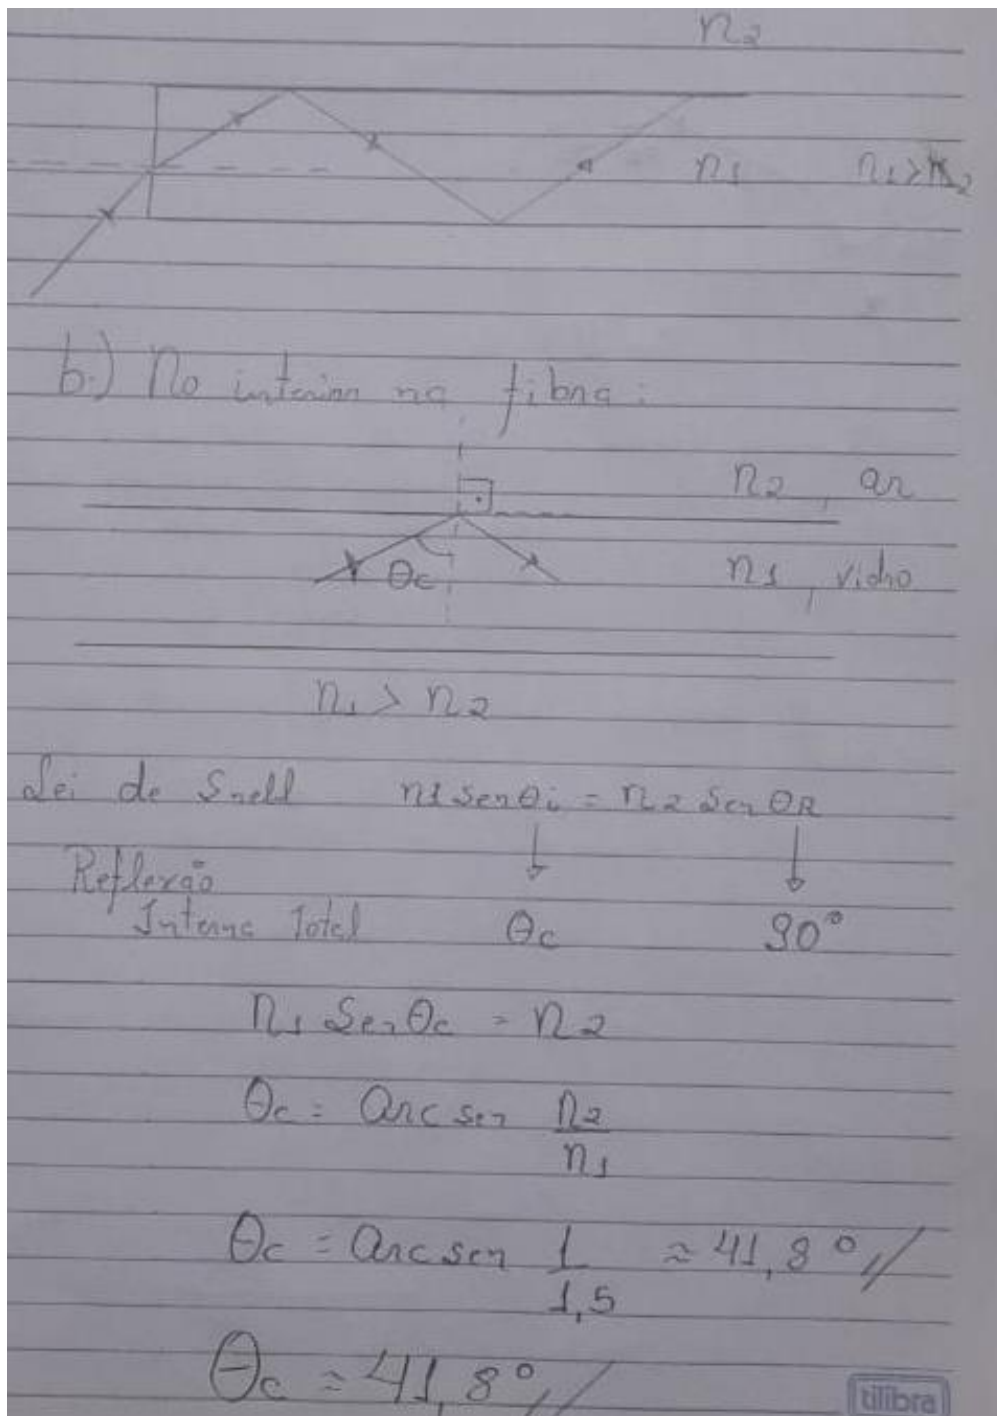 n2
n1 n1>n2
b.) No interior na fibra:
n2, ar
θc n1, vidro
n1 > n2
Lei de Snell n1 sen θi = n2 sen θR
Reflexão
Interna Total θc 90°
n1 Sen θc = n2
θc = arc sen n2
n1
θc = arc sen 1 ≈ 41,8°//
1,5
θc ≈ 41,8°//
tilibra